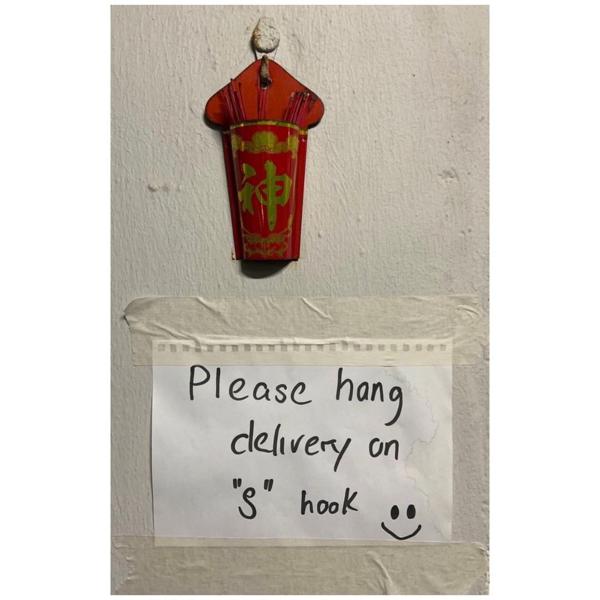 神
Please hang
delivery on
"S" hook